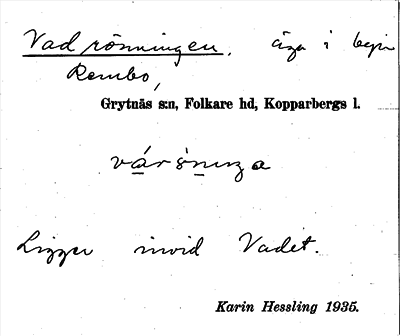 Vadrönningen, äga i
Rembo,
Grytnäs s:n, Folkare hd, Kopparbergs l.
Ligger invid Vadet.
Karin Hessling 1935.